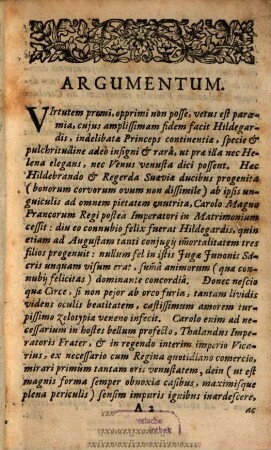 ARGUMENTUM.
VIrtutem premi, opprimi non posse, vetus est parœ-
mia, cujus amplissimam fidem facit Hildegar-
dis, indelibatæ Princeps continentiæ, specie &
pulchritudine adeò insigni & rarâ, ut præ illa nec He-
lena elegans, nec Venus venusta dici possent. Hæc
Hildebrando & Regerda Sueviæ ducibus progenita
(bonorum corvorum ovum non dissimile) ab ipsis un-
guiculis ad omnem pietatem enutrita, Carolo Magno
Francorum Regi postea Imperatori in Matrimonium
cessit: diu eo connubio felix fuerat Hildegardis, quin
etiam ad Augustam tanti conjugij immortalitatem tres
filios progenuit: nullum fel in istis Juga Junonis Sa-
cris unquam visum erat, summâ animorum (quæ con-
nubij felicitas) dominante concordiâ. Donec nescio
quæ Circe, si non pejor ab orco furia, tantam lividis
videns oculis beatitatem, castissimum amorem turpis-
simo zelotypiæ veneno infecit. Carolo enim ad ne-
cessarium in hostes bellum profecto, Thalandus Impe-
ratoris Frater, & in regendo interim imperio Vica-
rius, ex necessario cum Regina quotidiano comercio,
mirari primùm tantam oris venustatem, dein (ut est
magnis forma semper obnoxia casibus, maximisque
plena periculis) sensim impuris ignibus inardescere,
A 2 ac